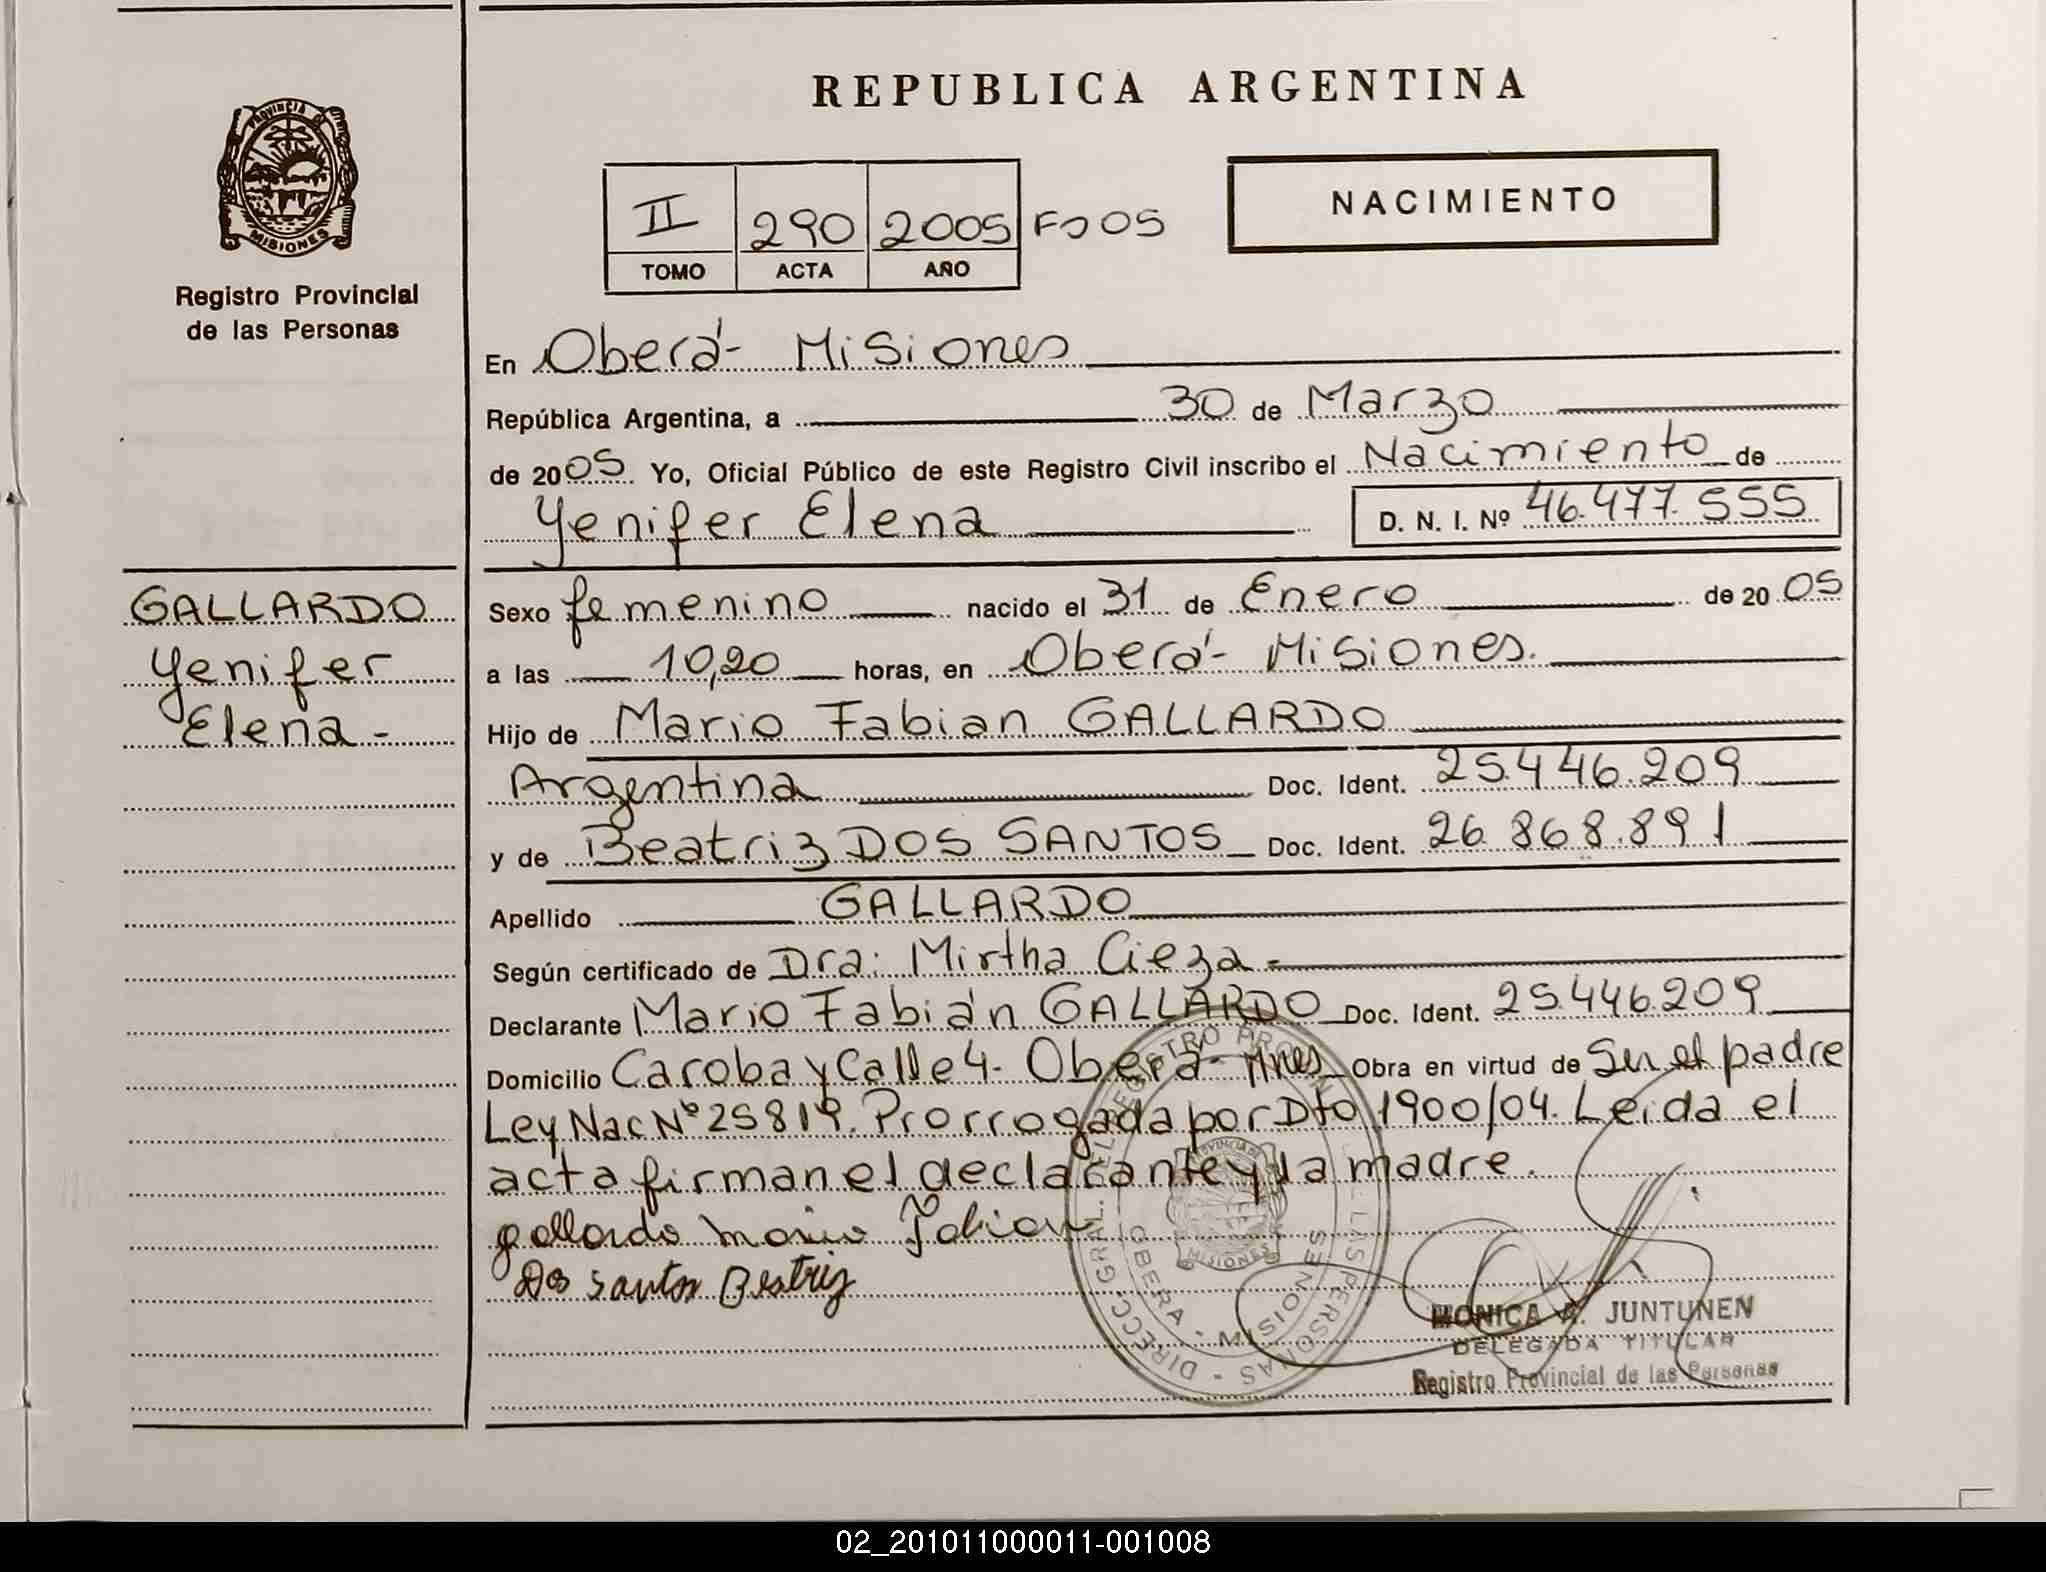 REPUBLICA ARGENTINA
PROVINCIA DE
MISIONES
Registro Provincial
de las Personas
II 290 2005 Fo 05
TOMO ACTA AÑO
NACIMIENTO
En Oberá- Misiones
República Argentina, a 30 de Marzo
de 2005. Yo, Oficial Público de este Registro Civil inscribo el Nacimiento de
Yenifer Elena D. N. I. Nº 46.477.555
GALLARDO
Yenifer
Elena-
Sexo femenino nacido el 31 de Enero de 2005
a las 10,20 horas, en Oberá- Misiones.
Hijo de Mario Fabian GALLARDO
Argentina Doc. Ident. 25.446.209
y de Beatriz DOS SANTOS Doc. Ident. 26.868.891
Apellido GALLARDO
Según certificado de Dra: Mirtha Cieza-
Declarante Mario Fabián GALLARDO Doc. Ident. 25.446.209
Domicilio Caroba y Calle 4- Oberá- Mnes Obra en virtud de Ser el padre
Ley Nac Nº 25819. Prorrogada por Dto 1900/04. Leida el
acta firman el declarante y la madre.
gallardo mario Fabian
Dos santos Beatriz
MONICA A. JUNTUNEN
DELEGADA TITULAR
Registro Provincial de las Personas
02_201011000011-001008